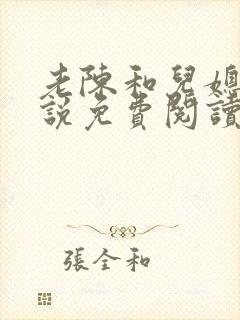 老陳和兒媳
說免費閱讀
張全和